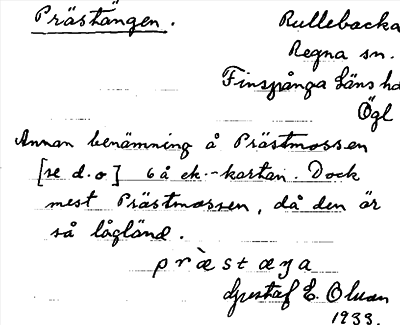 Prästängen.
Rullebacka
Regna sn.
Finspånga läns hd
Ögl
Annan benämning å Prästmossen
[se d.o] 6 å ek.-kartan. Dock
mest Prästmossen, då den är
så lågländ.
præ̀stæŋa
Gustaf E. Olsson
1933.